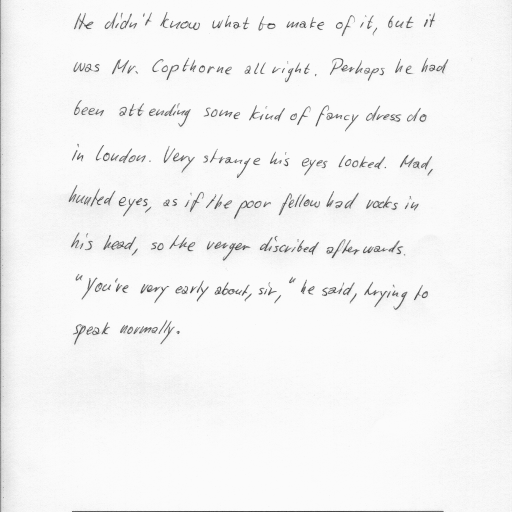 He didn't know what to make of it, but it
was Mr. Copthorne all right. Perhaps he had
been attending some kind of fancy dress do
in London. Very strange his eyes looked. Mad,
hunted eyes, as if the poor fellow had rocks in
his head, so the verger discribed afterwards.
"You're very early about, sir," he said, trying to
speak normally.